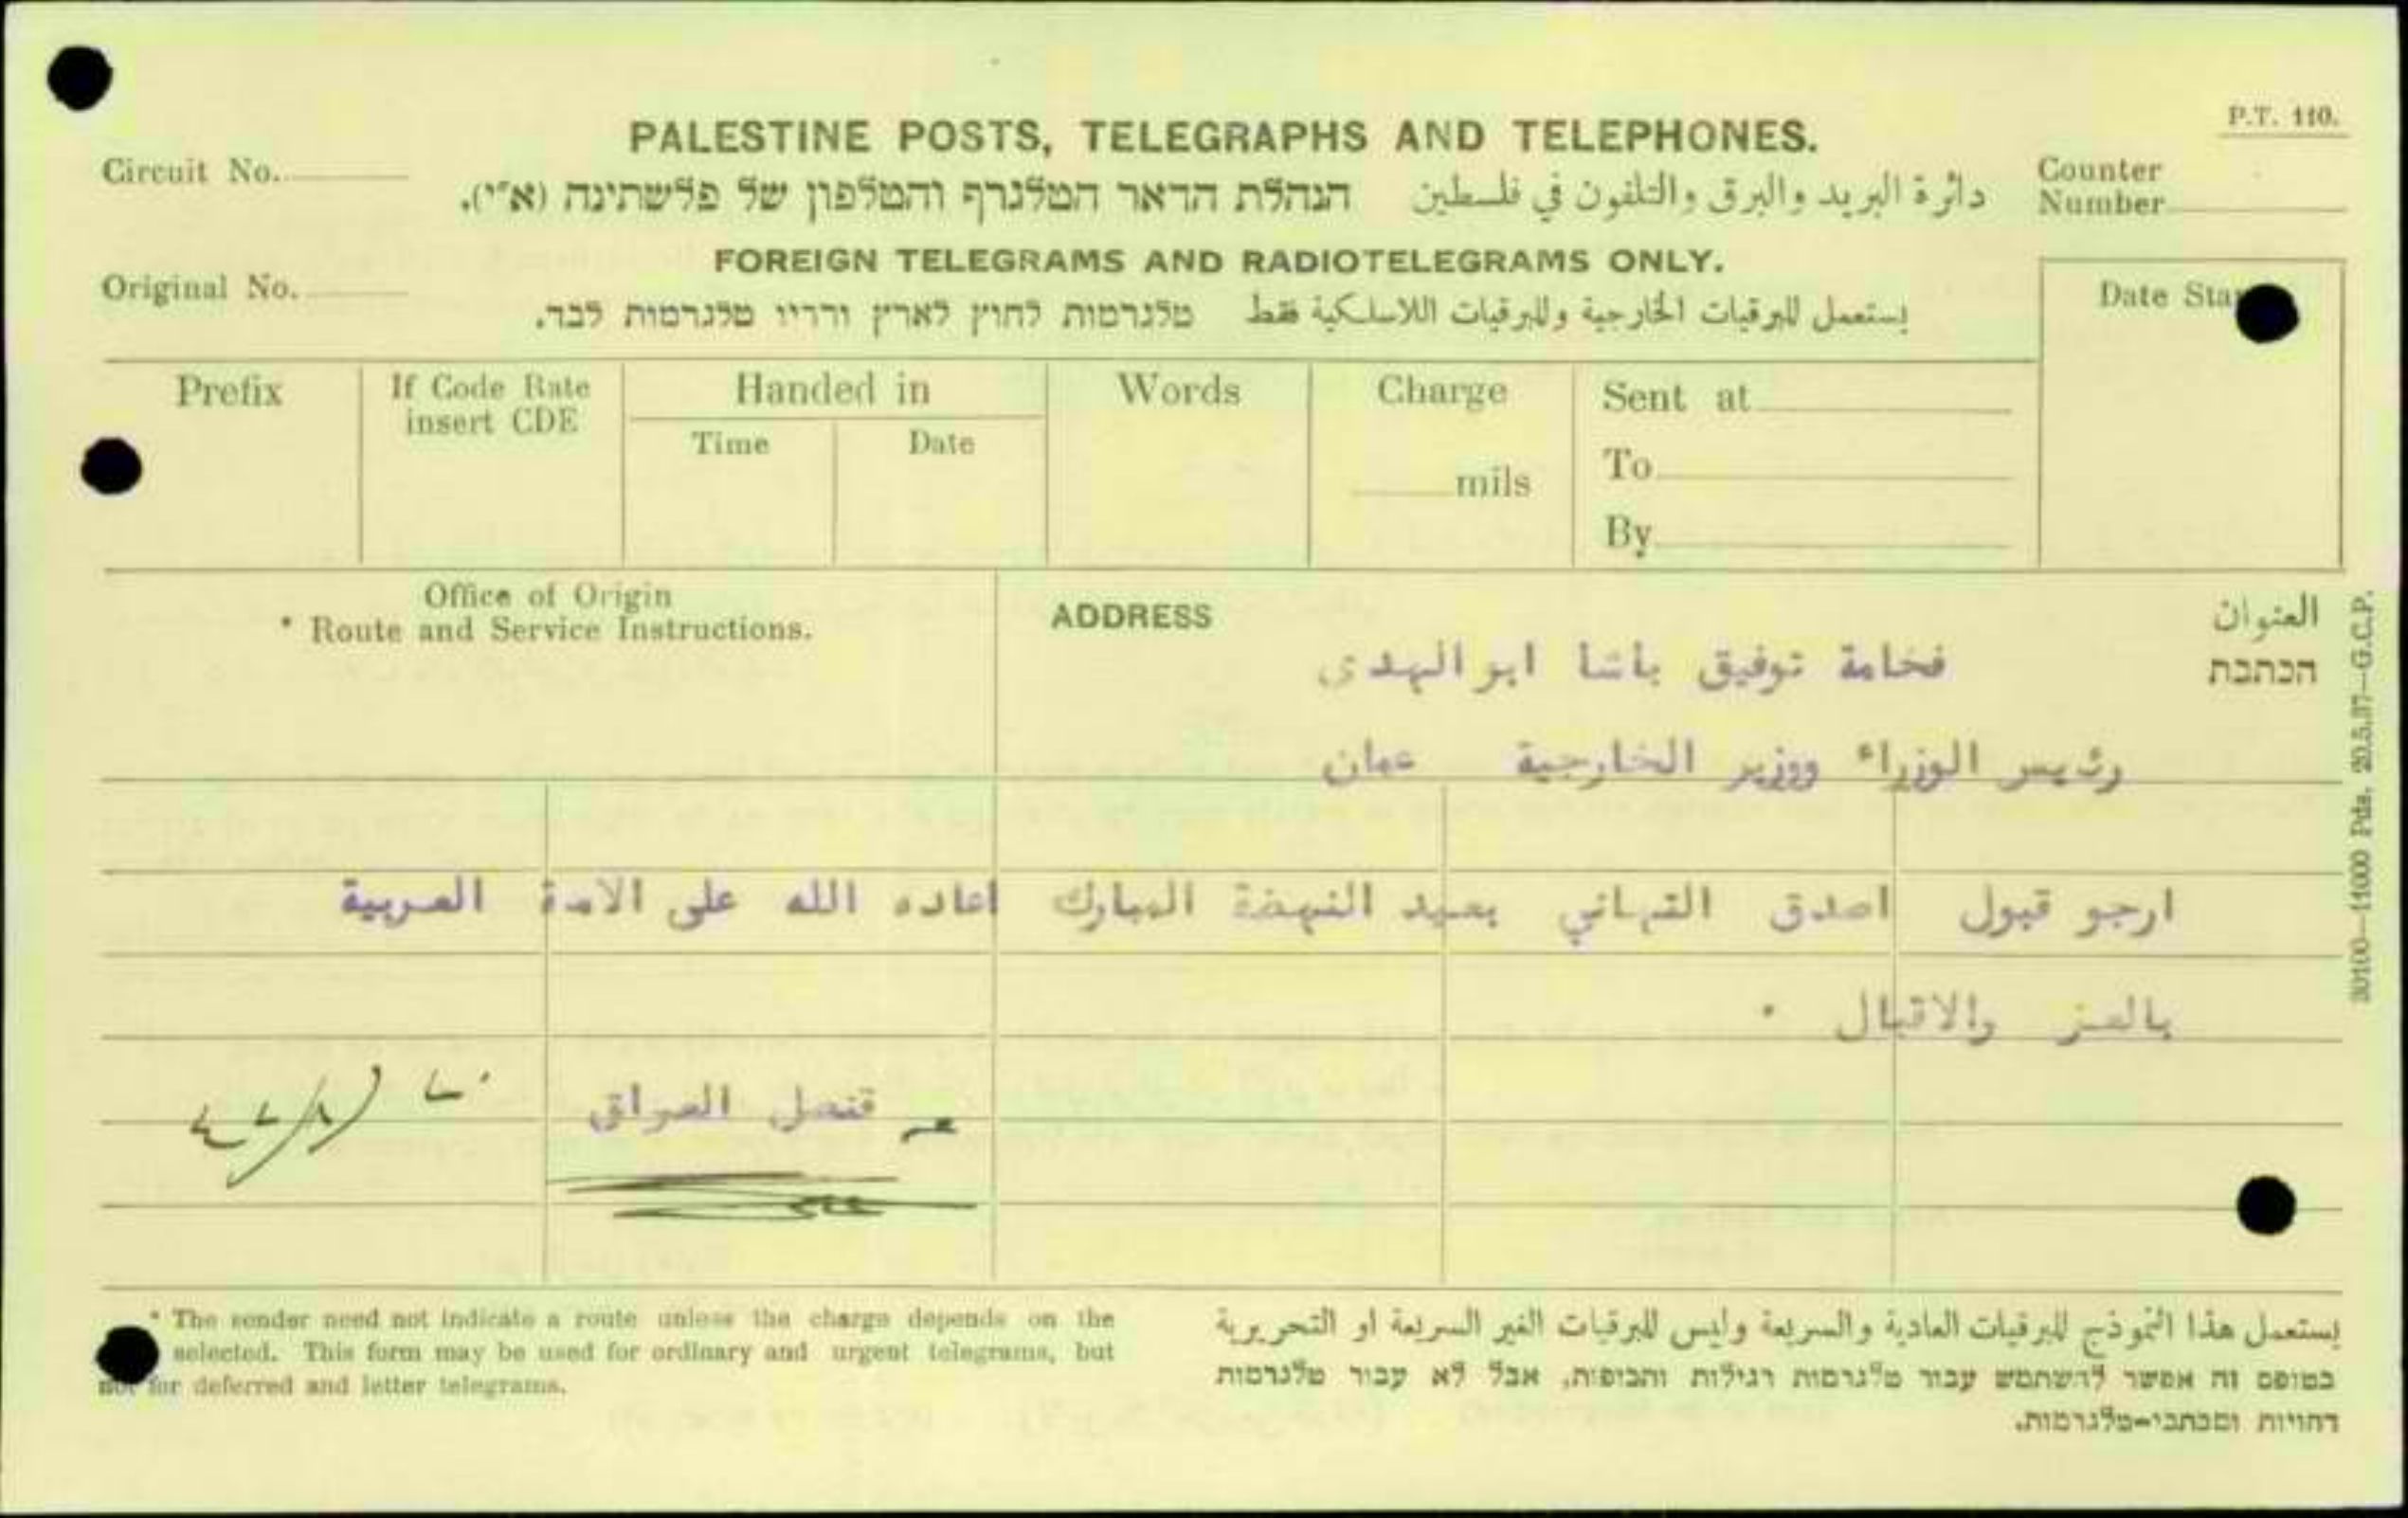 P.T. 110.
PALESTINE POSTS, TELEGRAPHS AND TELEPHONES.
Circuit No.
Counter Number
הנהלת הדאר הטלגרף והטלפון של פלשתינה (א"י). دائرة البريد والبرق والتلفون في فلسطين
FOREIGN TELEGRAMS AND RADIOTELEGRAMS ONLY.
Original No.
טלגרמות לחוץ לארץ ורדיו טלגרמות לבד. يستعمل للبرقيات الخارجية وللبرقيات اللاسلكية فقط
Date Sta
Prefix
If Code Rate insert CDE
Handed in
Time
Date
Words
Charge
mils
Sent at
To
By
Office of Origin
* Route and Service Instructions.
ADDRESS
العنوان
הכתבת
فخامة توفيق باشا ابو الهدى
رئيس الوزراء ووزير الخارجية عمان
ارجو قبول اصدق التهاني بعيد النهضة المبارك اعاده الله على الامة العربية
بالعز والاقبال .
قنصل العراق
* The sender need not indicate a route unless the charge depends on the
selected. This form may be used for ordinary and urgent telegrams, but
not for deferred and letter telegrams.
يستعمل هذا النموذج للبرقيات العادية والسريعة وليس للبرقيات الغير السريعة او التحريرية
בטופס זה אפשר להשתמש עבור טלגרמות רגילות ותכופות, אבל לא עבור טלגרמות
דחויות ומכתבי-טלגרמות.
30100—11000 Pds. 20.5.37—G.C.P.